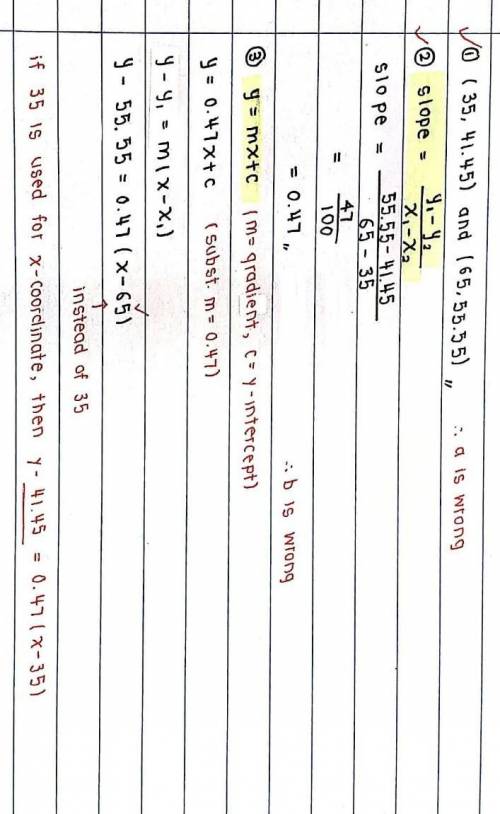 ① (35, 41.45) and (65, 55.55) „ ∴ a is wrong
② slope = y₁ - y₂ / x₁ - x₂
slope = 55.55 - 41.45 / 65 - 35
= 47 / 100
= 0.47 „ ∴ b is wrong
③ y = mx + c (m = gradient, c = y-intercept)
y = 0.47x + c (subst. m = 0.47)
y - y₁ = m(x - x₁)
y - 55.55 = 0.47 (x - 65)
instead of 35
if 35 is used for x-coordinate, then y - 41.45 = 0.47 (x - 35)